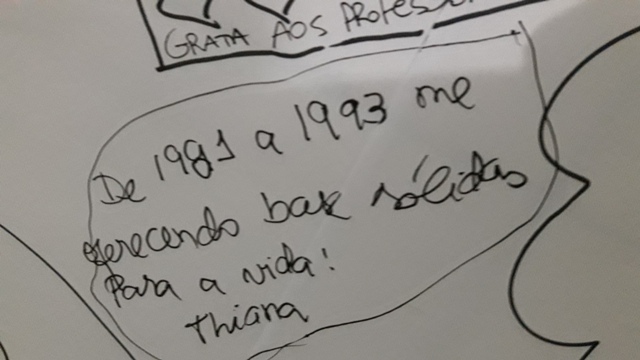 GRATA AOS PROFESSO
De 1981 a 1993 me
oferecendo base sólidas
Para a vida!
Thiana